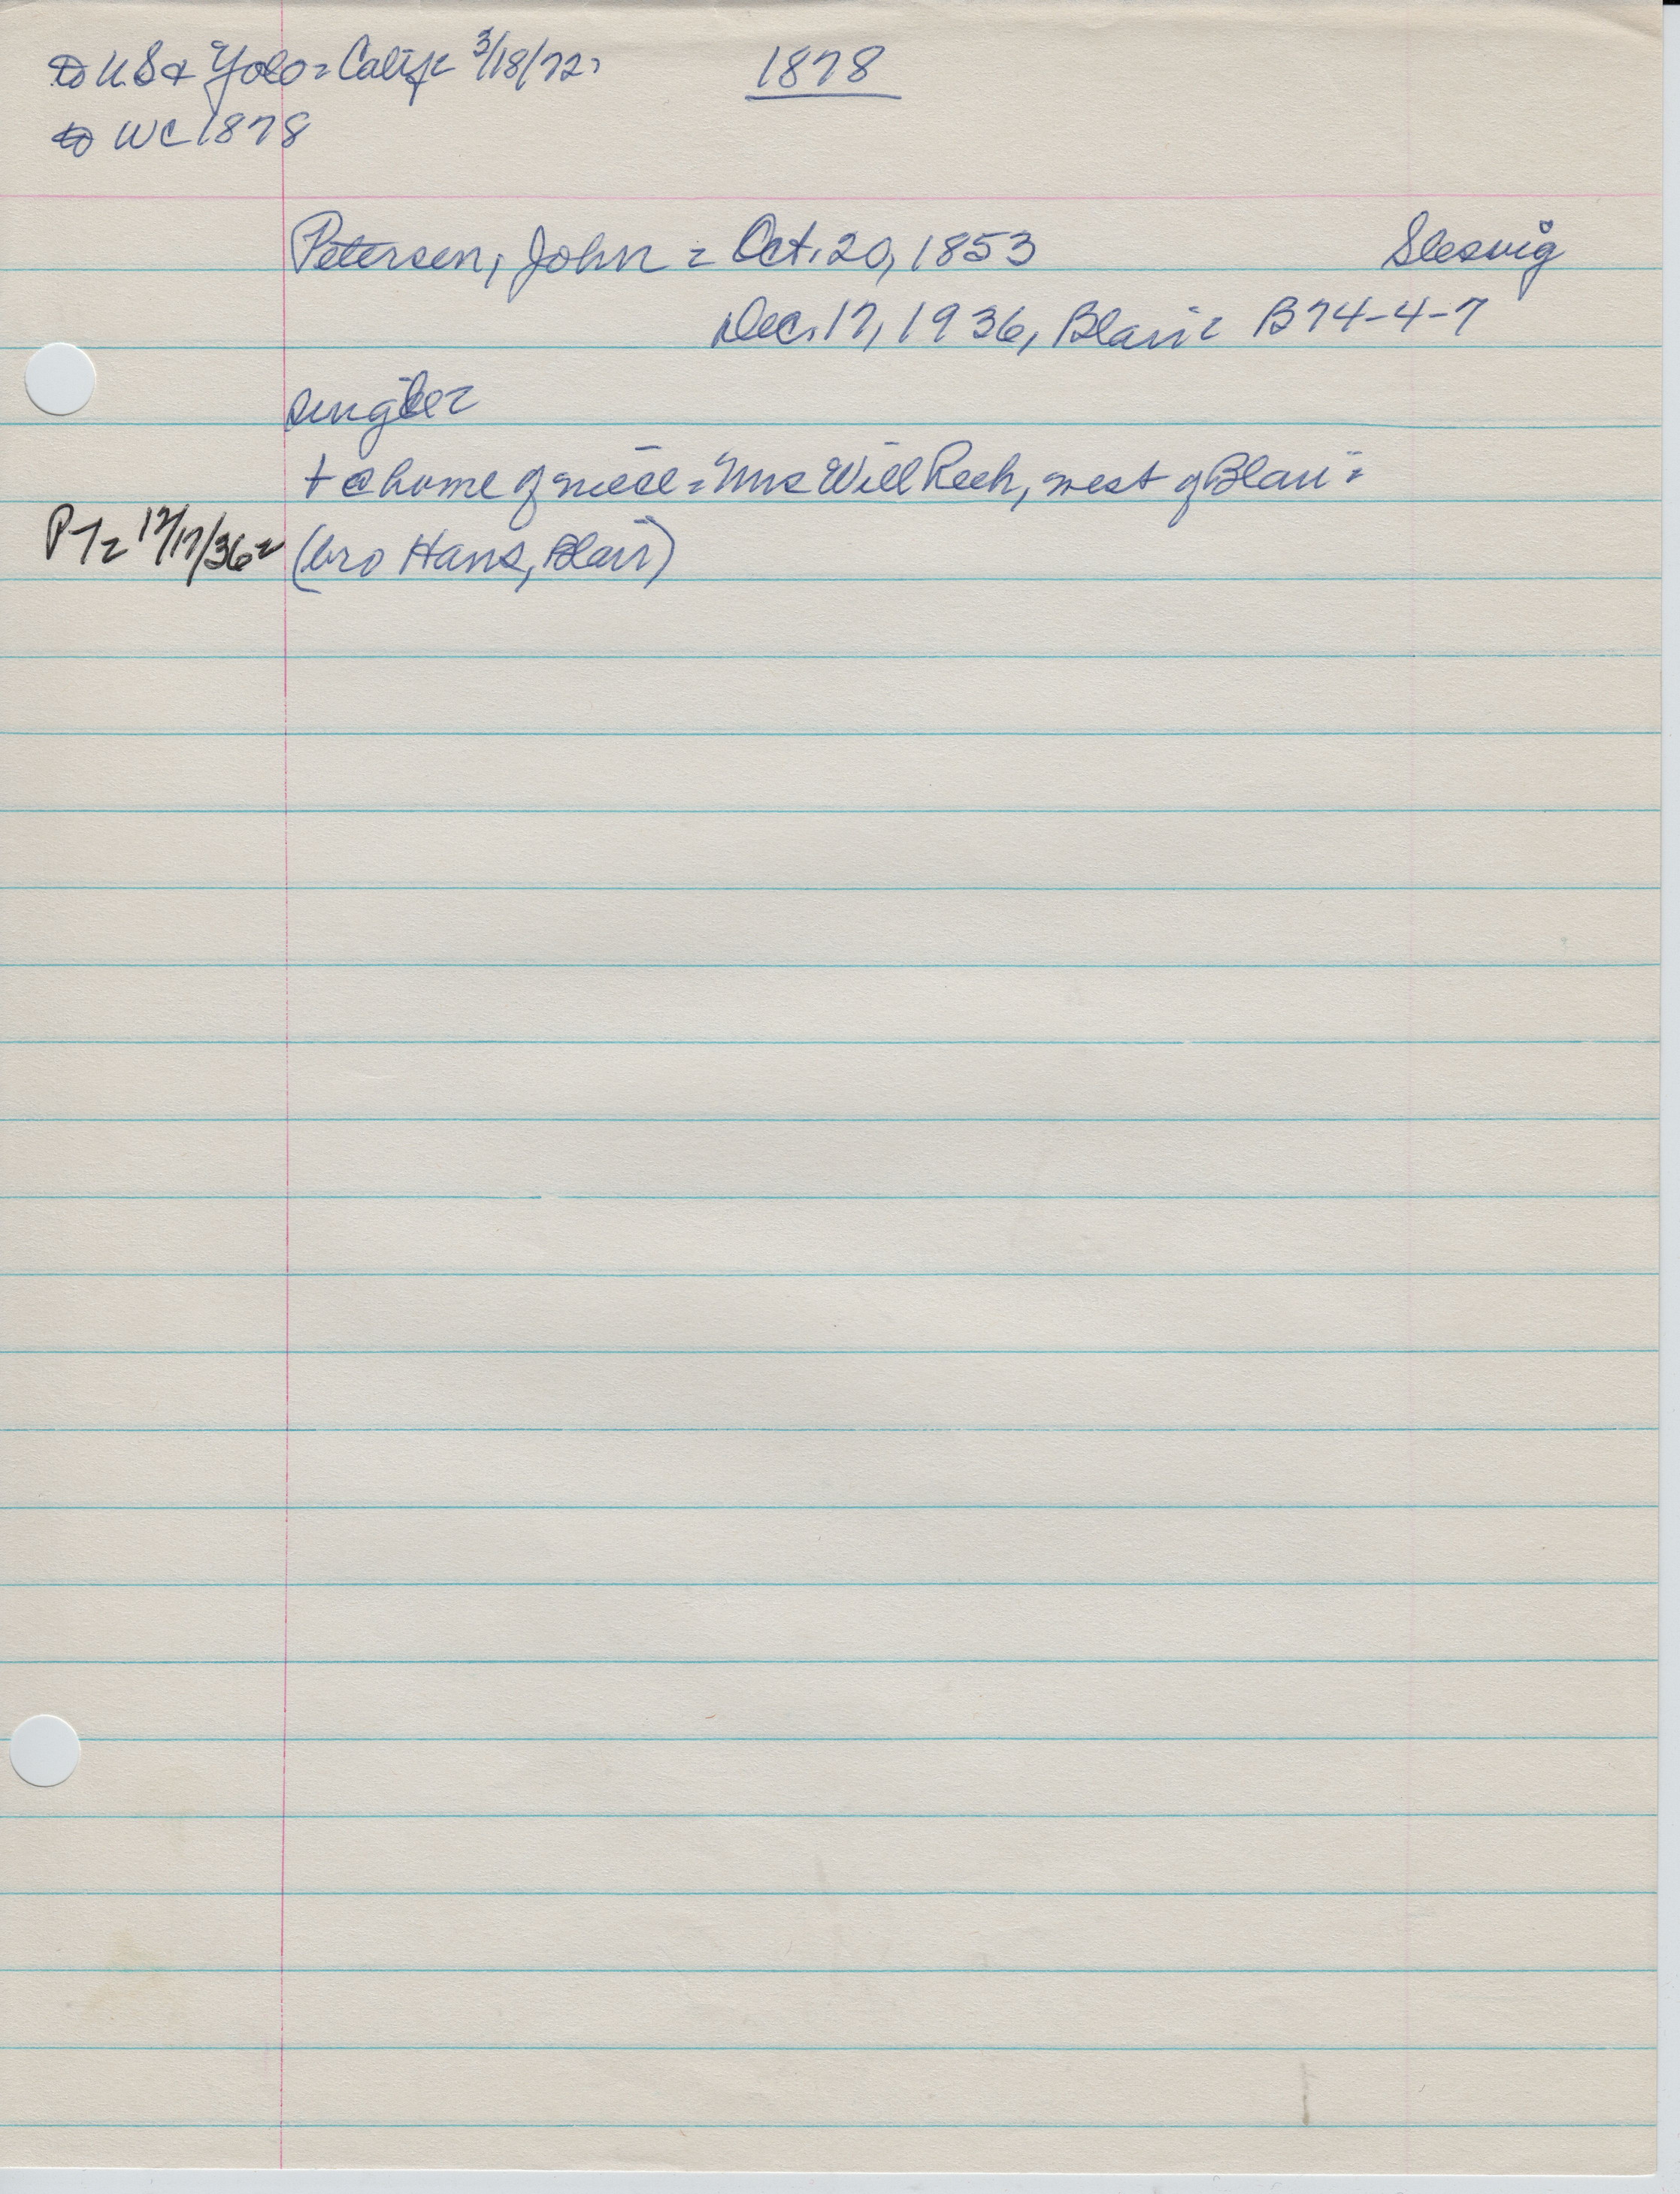 to US & Yolo = Calif = 3/18/72 =
1878
to WC 1878
Petersen, John = Oct. 20, 1853 Slesvig
Dec. 17, 1936, Blair = B74-4-7
single =
+ @ home of niece = Mrs Will Rech, west of Blair =
PT = 12/17/36 = (bro Hans, Blair)